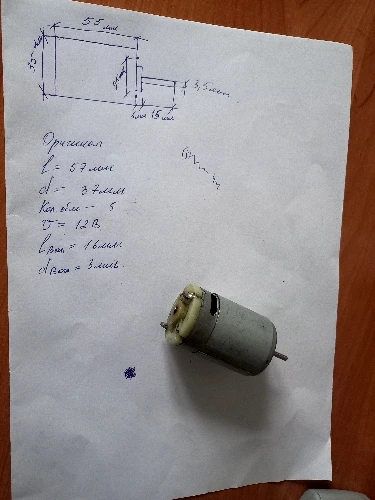 55 мм
35 мм
3,5 мм
15 мм
Оригинал
l = 57 мм
d = 37 мм
5
U = 12 В
l вал = 16 мм
d вал = 3 мм